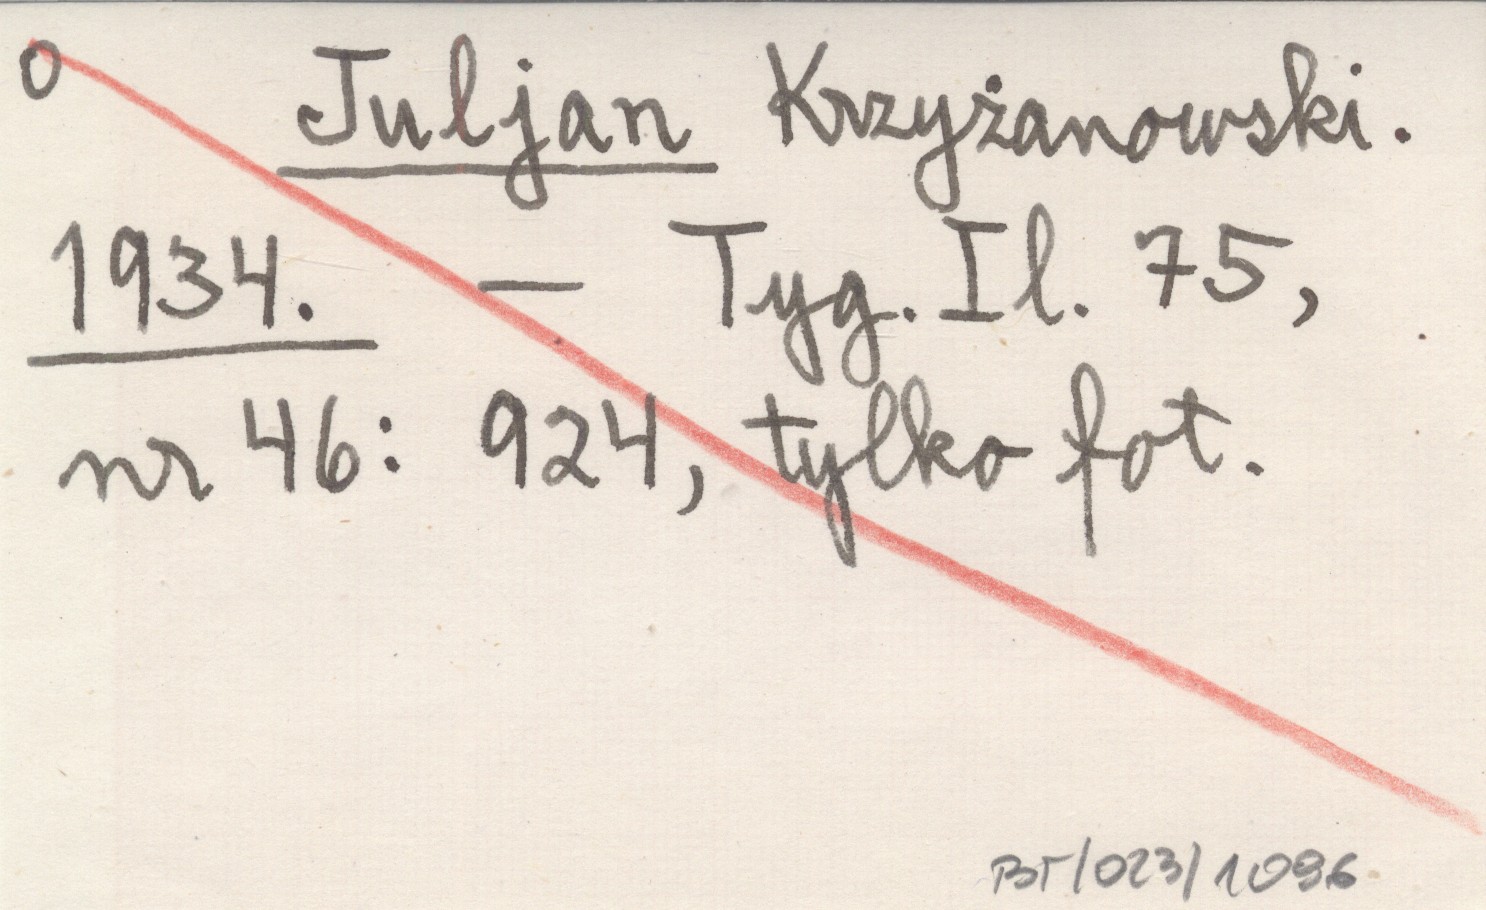 0 Juljan Krzyżanowski.
1934. — Tyg. Il. 75,
nr 46: 924, tylko fot.
BT/023/1096